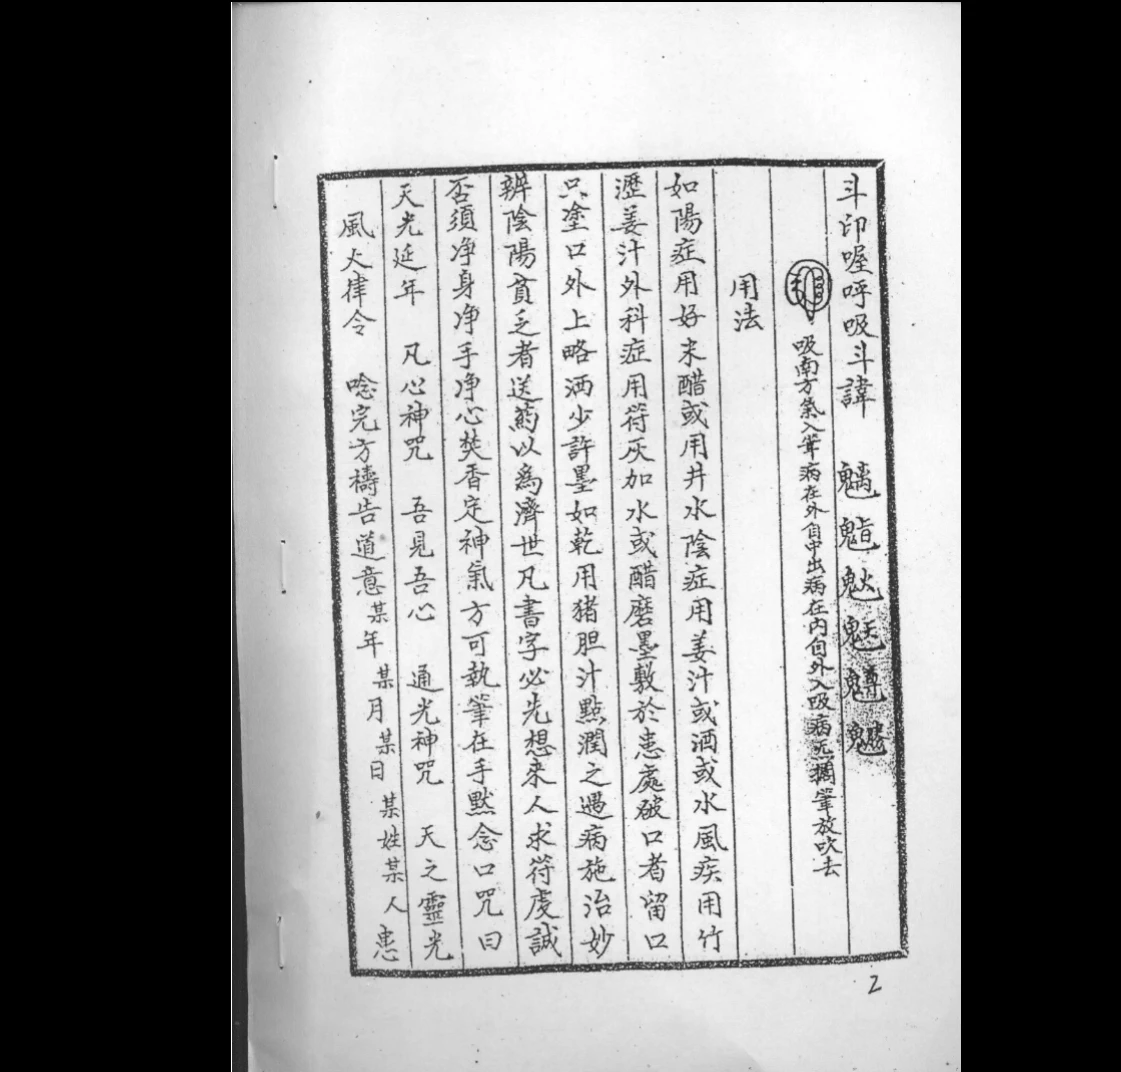 斗印喔呼吸斗諱　魑
吸南方氣入筆病在外自中出病在内自外入吸病炁擱筆放吹去
用法
如陽症用好米醋或用井水陰症用姜汁或酒或水風疾用竹
瀝姜汁外科症用符灰加水或醋磨墨敷於患處破口者留口
只塗口外上略洒少許墨如乾用猪胆汁點潤之遇病施治妙
辨陰陽貧乏者送药以爲濟世凡書字必先想來人求符虔誠
否須净身净手净心焚香定神氣方可執筆在手默念口咒曰
天光延年　凡心神咒　吾見吾心　通光神咒　天之靈光
風火律令　唸完方禱告道意某年某月某日某姓某人患
2